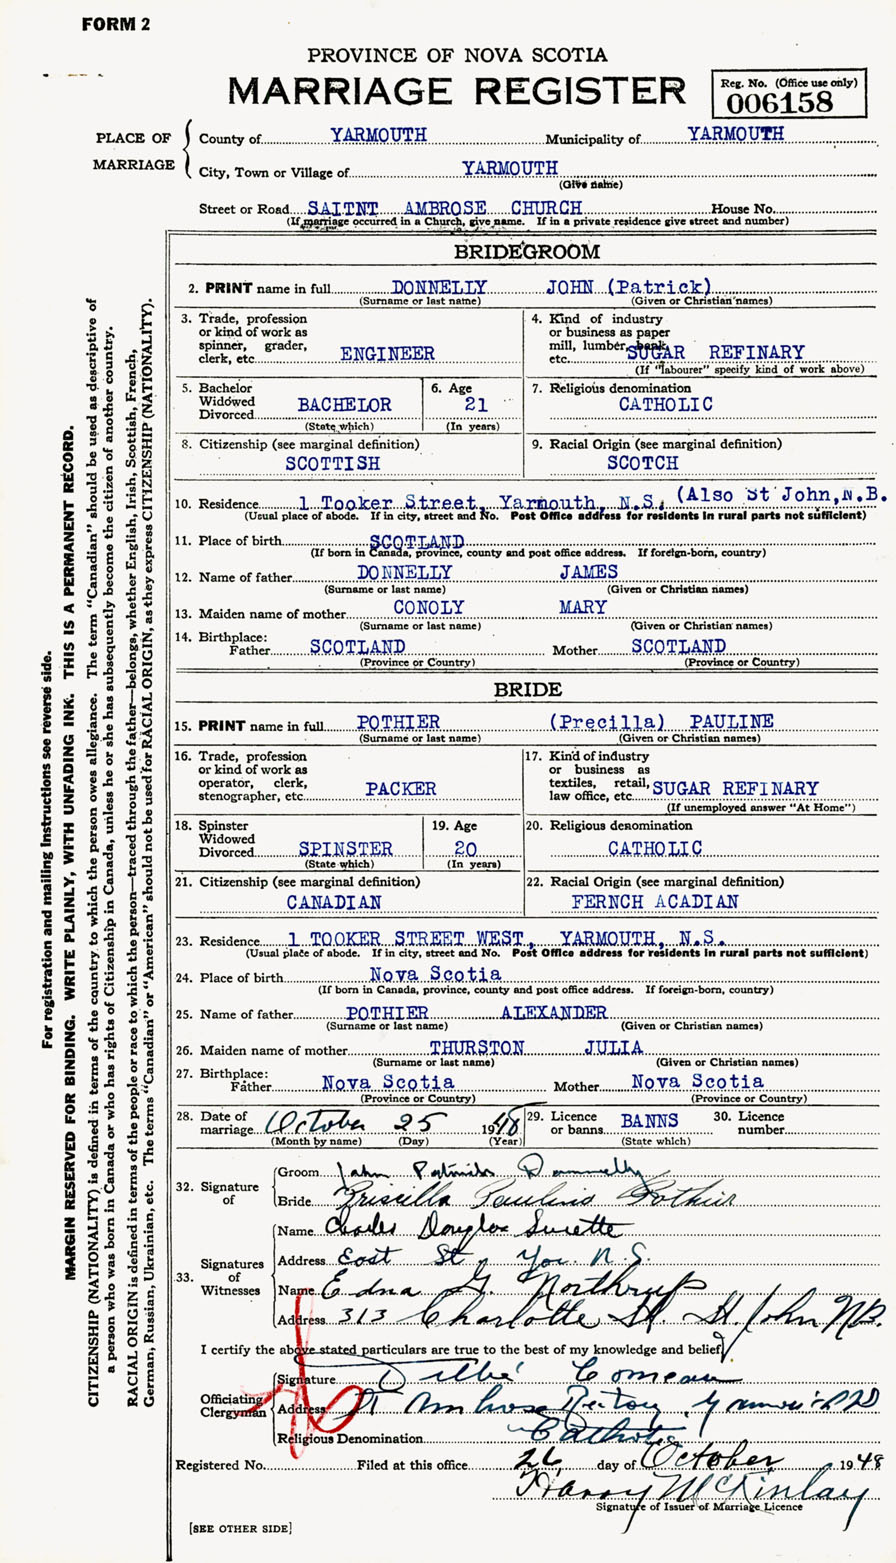 FORM 2
PROVINCE OF NOVA SCOTIA
MARRIAGE REGISTER
Reg. No. (Office use only)
006158
PLACE OF MARRIAGE
County of YARMOUTH Municipality of YARMOUTH
City, Town or Village of YARMOUTH
(Give name)
Street or Road SAITNT AMBROSE CHURCH House No.
(If marriage occurred in a Church, give name. If in a private residence give street and number)
BRIDEGROOM
2. PRINT name in full DONNELLY JOHN (Patrick)
(Surname or last name) (Given or Christian names)
3. Trade, profession or kind of work as spinner, grader, clerk, etc. ENGINEER
4. Kind of industry or business as paper mill, lumber, bank, etc. SUGAR REFINARY
(If "labourer" specify kind of work above)
5. Bachelor Widowed Divorced BACHELOR
(State which)
6. Age 21
(In years)
7. Religious denomination
CATHOLIC
8. Citizenship (see marginal definition)
SCOTTISH
9. Racial Origin (see marginal definition)
SCOTCH
10. Residence 1 Tooker Street, Yarmouth, N.S. (Also St John, N.B.
(Usual place of abode. If in city, street and No. Post Office address for residents in rural parts not sufficient)
11. Place of birth SCOTLAND
(If born in Canada, province, county and post office address. If foreign-born, country)
12. Name of father DONNELLY JAMES
(Surname or last name) (Given or Christian names)
13. Maiden name of mother CONOLY MARY
(Surname or last name) (Given or Christian names)
14. Birthplace:
Father SCOTLAND Mother SCOTLAND
(Province or Country) (Province or Country)
BRIDE
15. PRINT name in full POTHIER (Precilla) PAULINE
(Surname or last name) (Given or Christian names)
16. Trade, profession or kind of work as operator, clerk, stenographer, etc. PACKER
17. Kind of industry or business as textiles, retail, law office, etc. SUGAR REFINARY
(If unemployed answer "At Home")
18. Spinster Widowed Divorced SPINSTER
(State which)
19. Age 20
(In years)
20. Religious denomination
CATHOLIC
21. Citizenship (see marginal definition)
CANADIAN
22. Racial Origin (see marginal definition)
FERNCH ACADIAN
23. Residence 1 TOOKER STREET WEST, YARMOUTH, N.S.
(Usual place of abode. If in city, street and No. Post Office address for residents in rural parts not sufficient)
24. Place of birth Nova Scotia
(If born in Canada, province, county and post office address. If foreign-born, country)
25. Name of father POTHIER ALEXANDER
(Surname or last name) (Given or Christian names)
26. Maiden name of mother THURSTON JULIA
(Surname or last name) (Given or Christian names)
27. Birthplace:
Father Nova Scotia Mother Nova Scotia
(Province or Country) (Province or Country)
28. Date of marriage October 25 1948
(Month by name) (Day) (Year)
29. Licence or banns BANNS
(State which)
30. Licence number
32. Signature of
Groom John Patrick Donnelly
Bride Priscilla Pauline Pothier
33. Signatures of Witnesses
Name Charles Douglas Surette
Address East St, Yar. N.S.
Name Edna G. Northrup
Address 313 Charlotte St. St. John NB.
I certify the above stated particulars are true to the best of my knowledge and belief
Officiating Clergyman
Signature Comeau
Address St Ambrose Rectory, Yarmouth
Religious Denomination Catholic
Registered No. Filed at this office 26 day of October 1948
Harry McKinlay
Signature of Issuer of Marriage Licence
[SEE OTHER SIDE]
For registration and mailing instructions see reverse side.
MARGIN RESERVED FOR BINDING. WRITE PLAINLY, WITH UNFADING INK. THIS IS A PERMANENT RECORD.
CITIZENSHIP (NATIONALITY) is defined in terms of the country to which the person owes allegiance. The term "Canadian" should be used as descriptive of
a person who was born in Canada or who has rights of Citizenship in Canada, unless he or she has subsequently become the citizen of another country.
RACIAL ORIGIN is defined in terms of the people or race to which the person—traced through the father—belongs, whether English, Irish, Scottish, French,
German, Russian, Ukrainian, etc. The terms "Canadian" or "American" should not be used for RACIAL ORIGIN, as they express CITIZENSHIP (NATIONALITY).